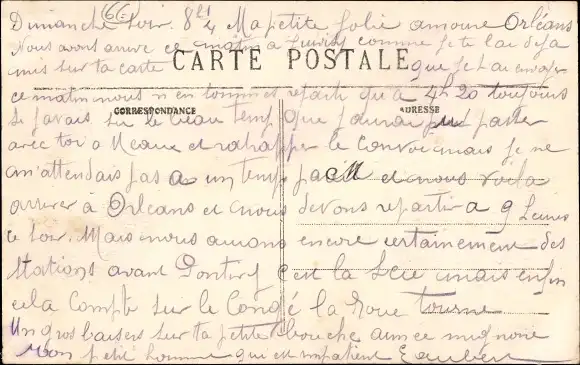 Dimanche Soir. 8h 1/4 (66) Ma petite folie amour Orléans
Nous avons arrivé ce matin a Juvisy comme je te l'ai deja
mis sur ta carte que je t'ai envoyer
CARTE POSTALE
ce matin nous n'en sommes reparti qu'a 4h20 toujours
CORRESPONDANCE
ADRESSE
Si j'avais su le beau temp que j'aurai pu passer
avec toi a Meaux et rattraper le convoi mais je ne
m'attendais pas a un temps pareil et nous voila
arriver à Orléans et nous devons repartir a 9 heures
ce soir. Mais nous aurons encore certainement des
stations avant Pontivy c'est la Scie mais enfin
cela compte sur le Congé la Roue tourne
Un gros baisers sur ta petite bouche aimée mignonne
Mon petit homme qui est impatient